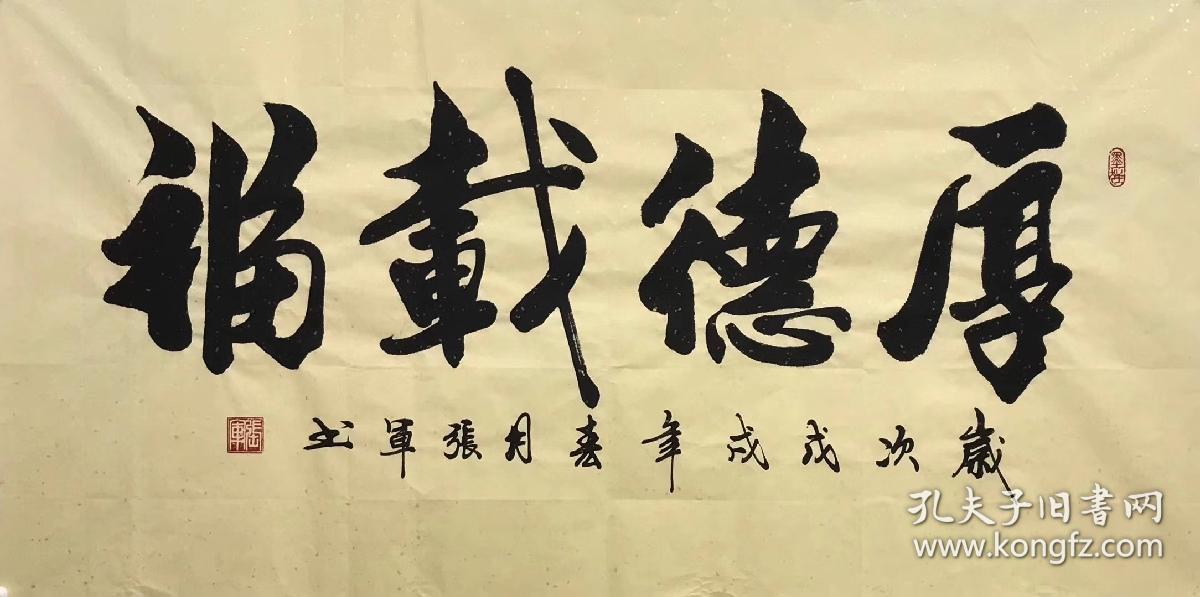 厚德載福
歲次戊戌年春月張軍书
張軍
孔夫子旧書网
www.kongfz.com